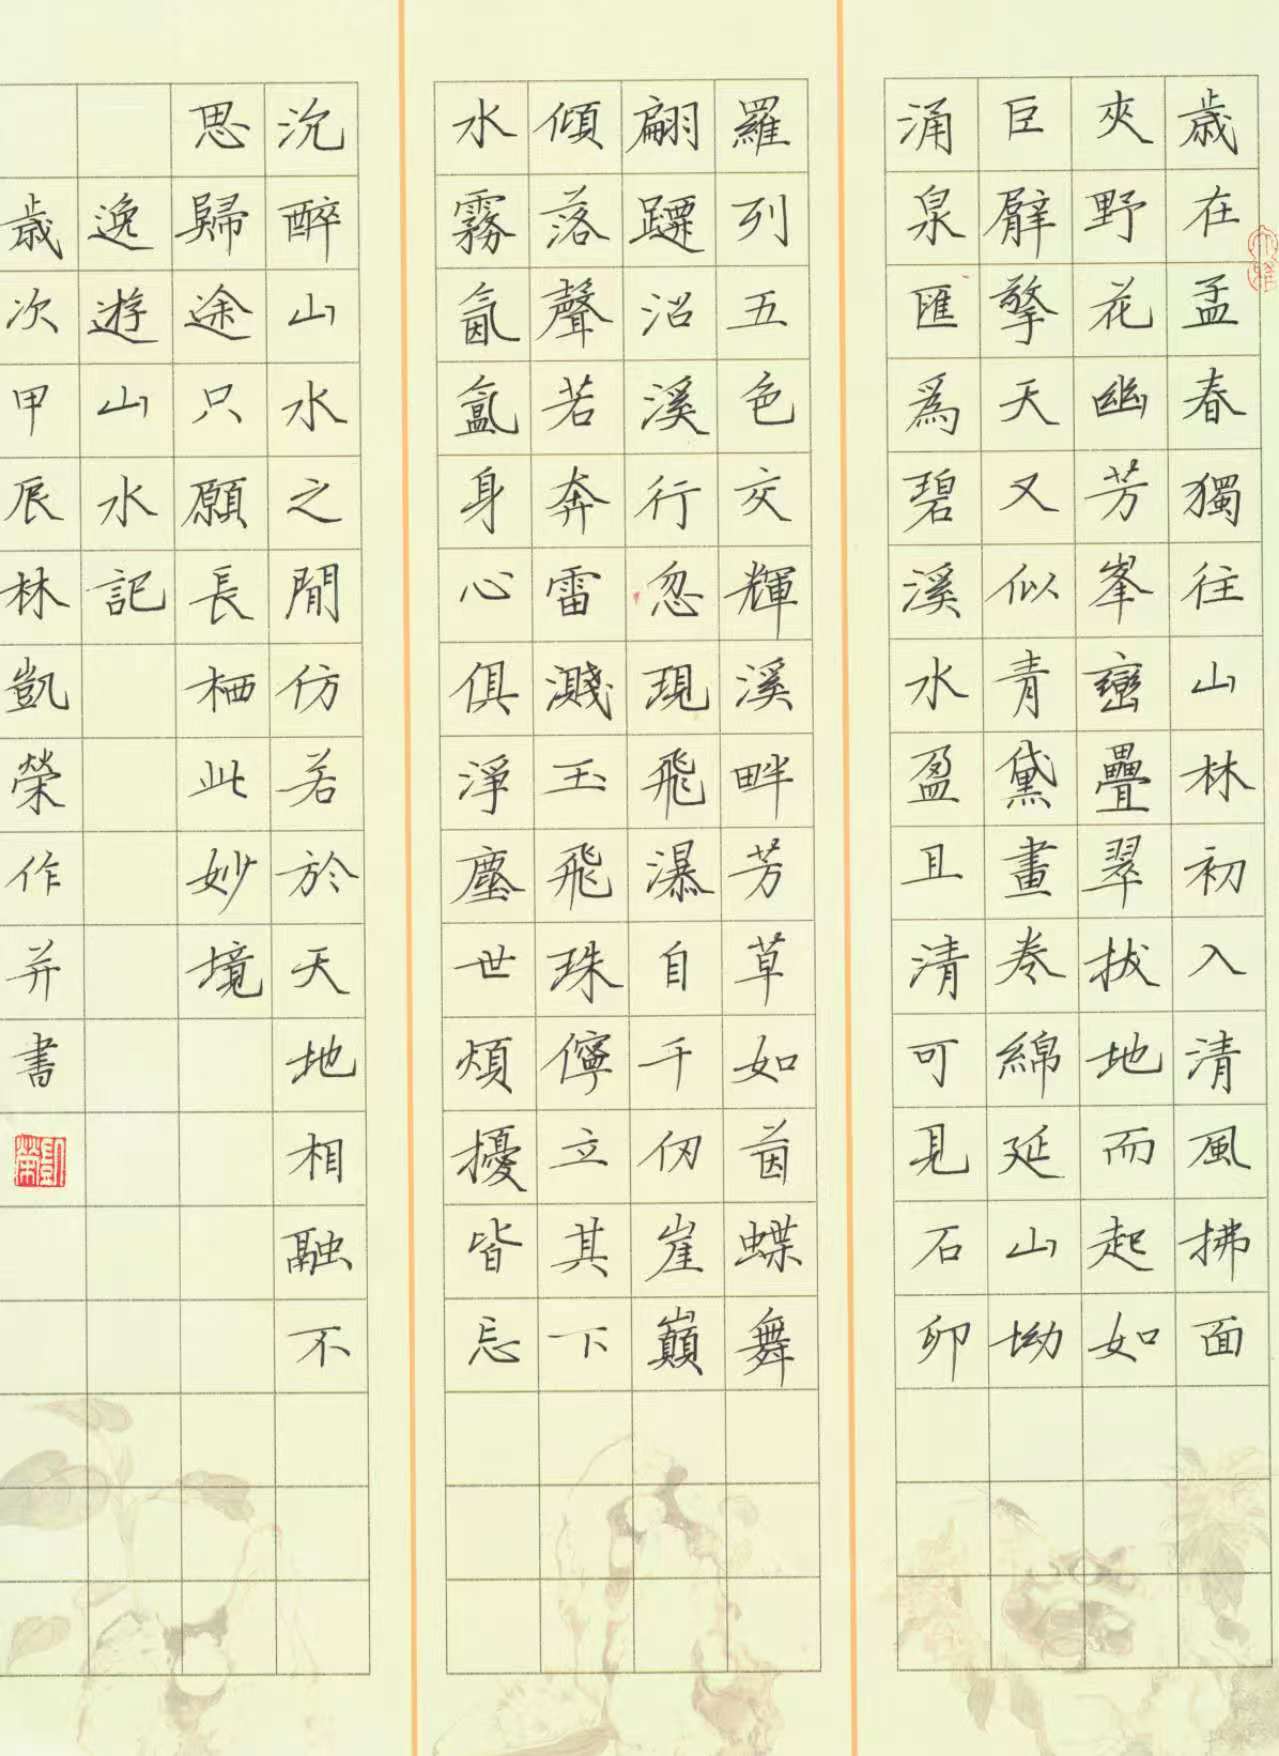 歲在孟春獨往山林初入清風拂面
夾野花幽芳峯巒疊翠拔地而起如
巨擘擎天又似青黛畫卷綿延山坳
涌泉匯爲碧溪水盈且清可見石卵
羅列五色交輝溪畔芳草如茵蝶舞
翩躚沿溪行忽現飛瀑自千仞崖巔
傾落聲若奔雷濺玉飛珠儜立其下
水霧氤氳身心俱淨塵世煩擾皆忘
沉醉山水之間仿若於天地相融不
思歸途只願長栖此妙境
逸遊山水記
歲次甲辰林凱榮作并書
凱榮